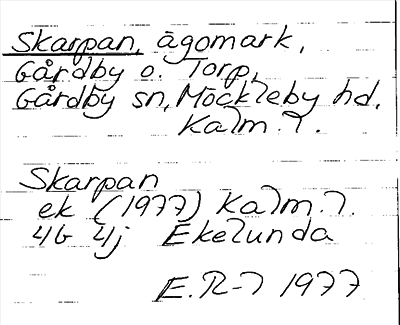 Skarpan, ägomark,
Gårdby o. Torp,
Gårdby sn, Möckleby hd,
Kalm. l.
Skarpan
ek (1977) Kalm. l.
4G 4j Ekelunda
E. R-l 1977